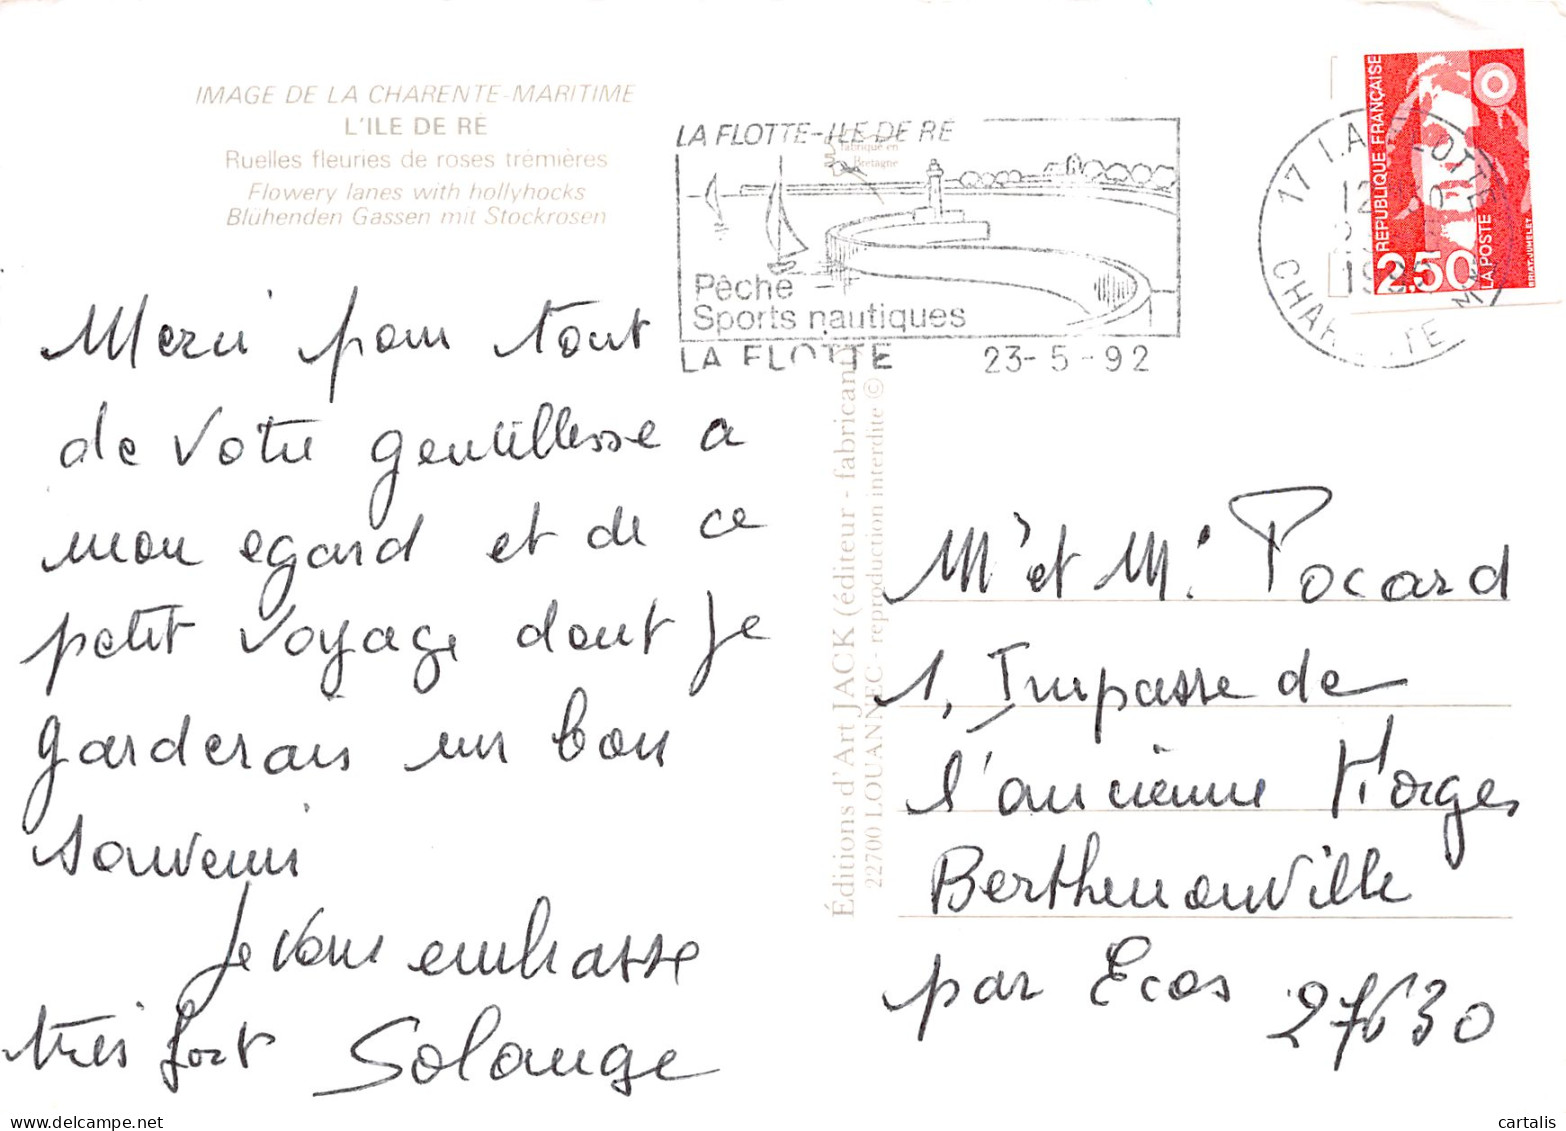 IMAGE DE LA CHARENTE-MARITIME
L'ILE DE RÉ
Ruelles fleuries de roses trémières
Flowery lanes with hollyhocks
Blühenden Gassen mit Stockrosen
LA FLOTTE-ILE DE RE
fabriqué en
Bretagne
Pêche
Sports nautiques
LA FLOTTE 23-5-92
17 LA FLOTTE
CHARENTE
RÉPUBLIQUE FRANÇAISE
2,50
LA POSTE
BRIAT-JUMELET
Merci pour tout
de votre gentillesse a
mon egard et de ce
petit voyage dont je
garderais un bon
souvenir
Je vous embrasse
très fort Solange
Éditions d'Art JACK (éditeur - fabricant)
22700 LOUANNEC - reproduction interdite ©
Mr et Me Pocard
1, Impasse de
l'ancienne Horges
Berthenonville
par Ecos 27630
www.delcampe.net
cartalis